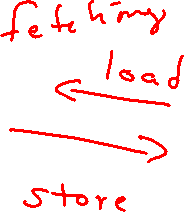 fetching
load
store